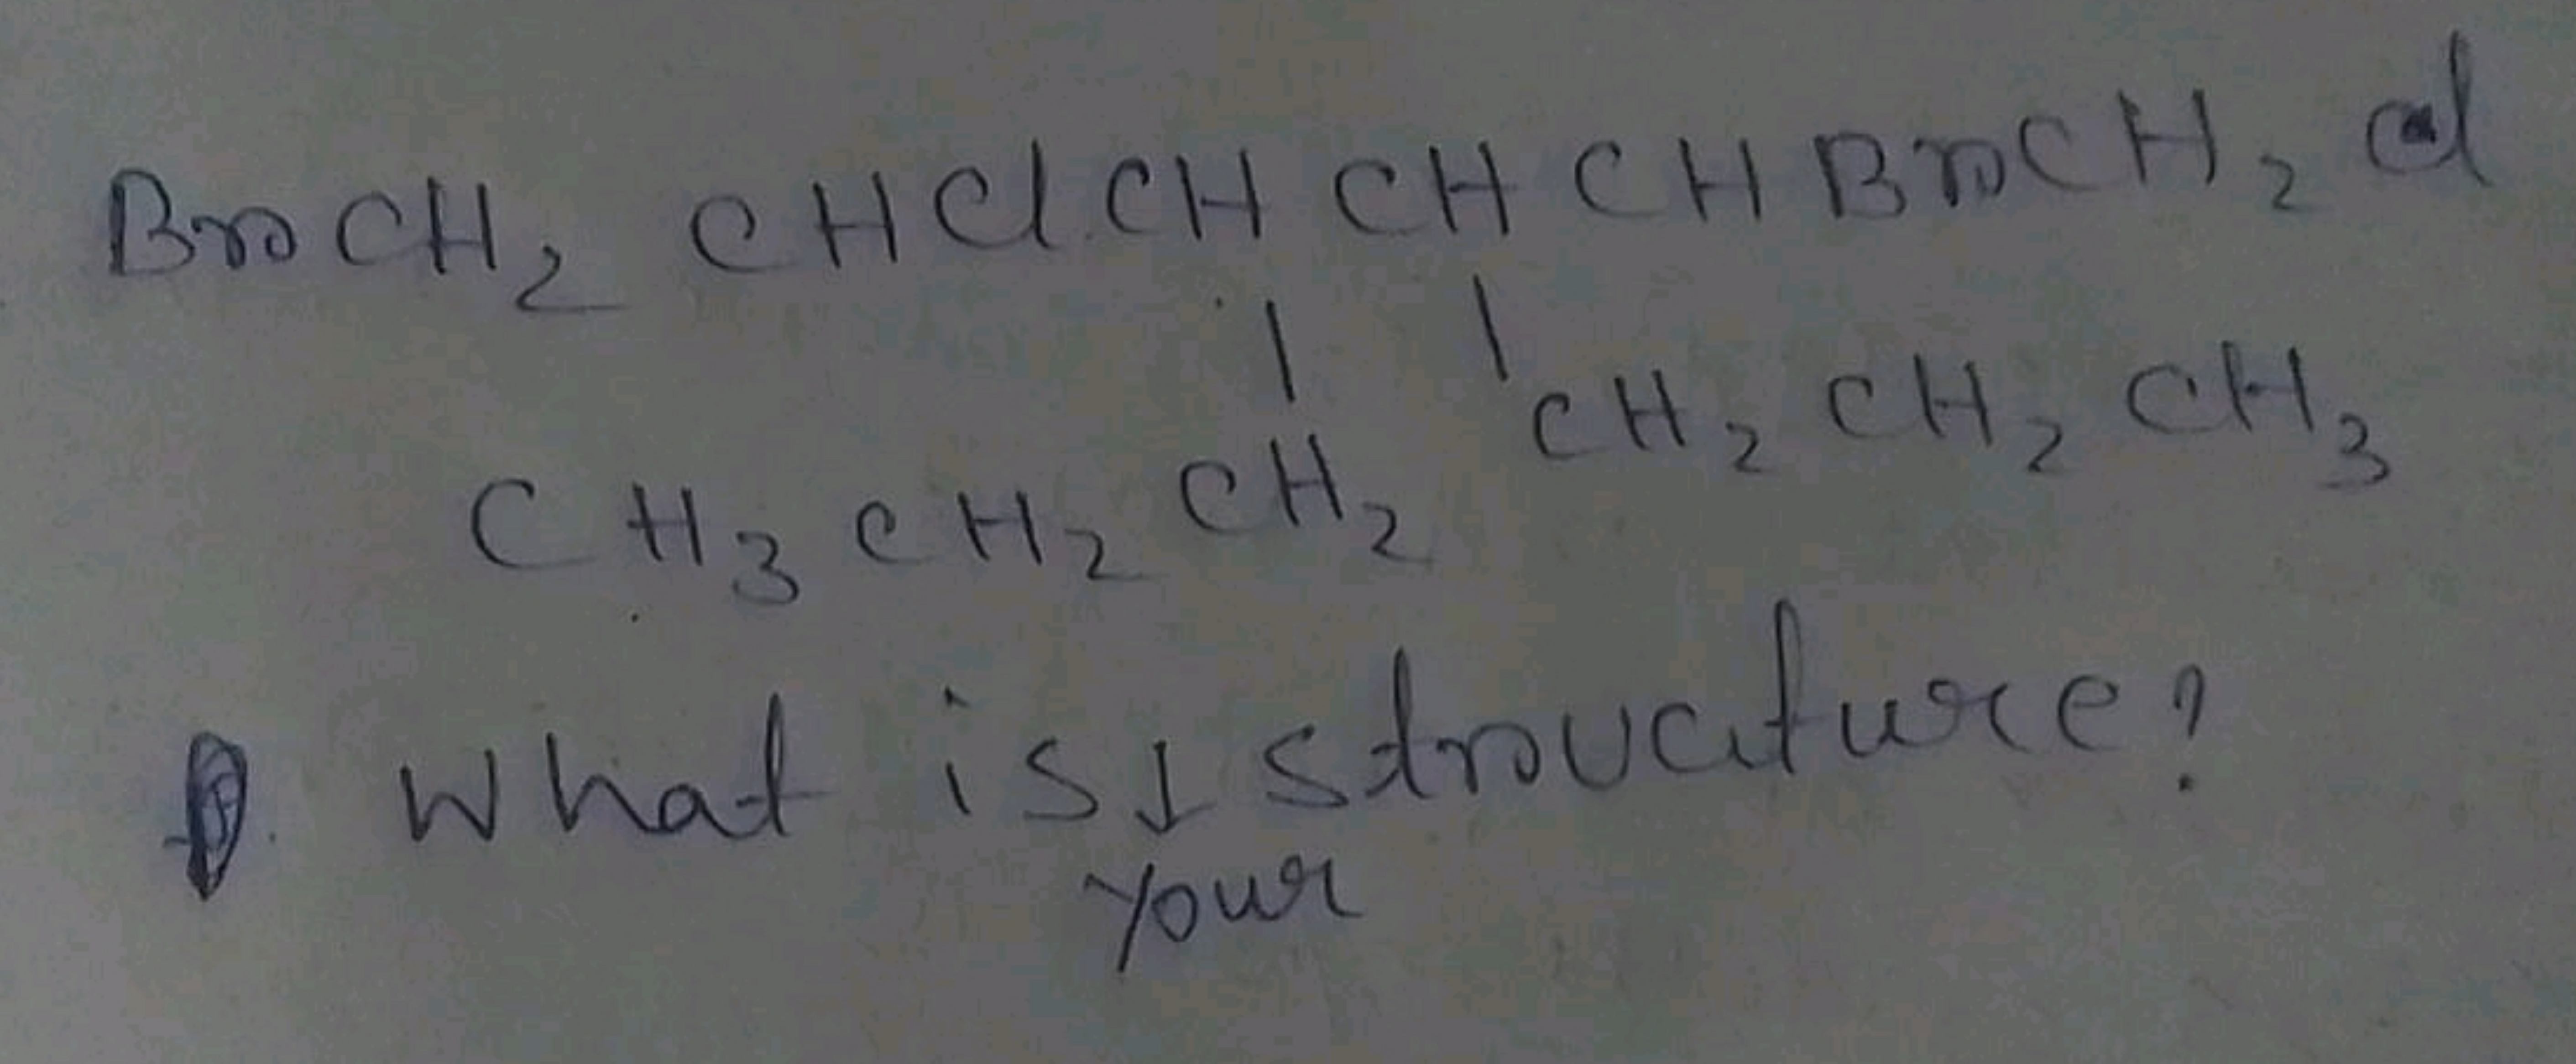 BrCH2 CHCl CH CH CHBrCH2 Cl
CH2 CH2 CH3
CH3 CH2 CH2
What is ↓ structure?
your